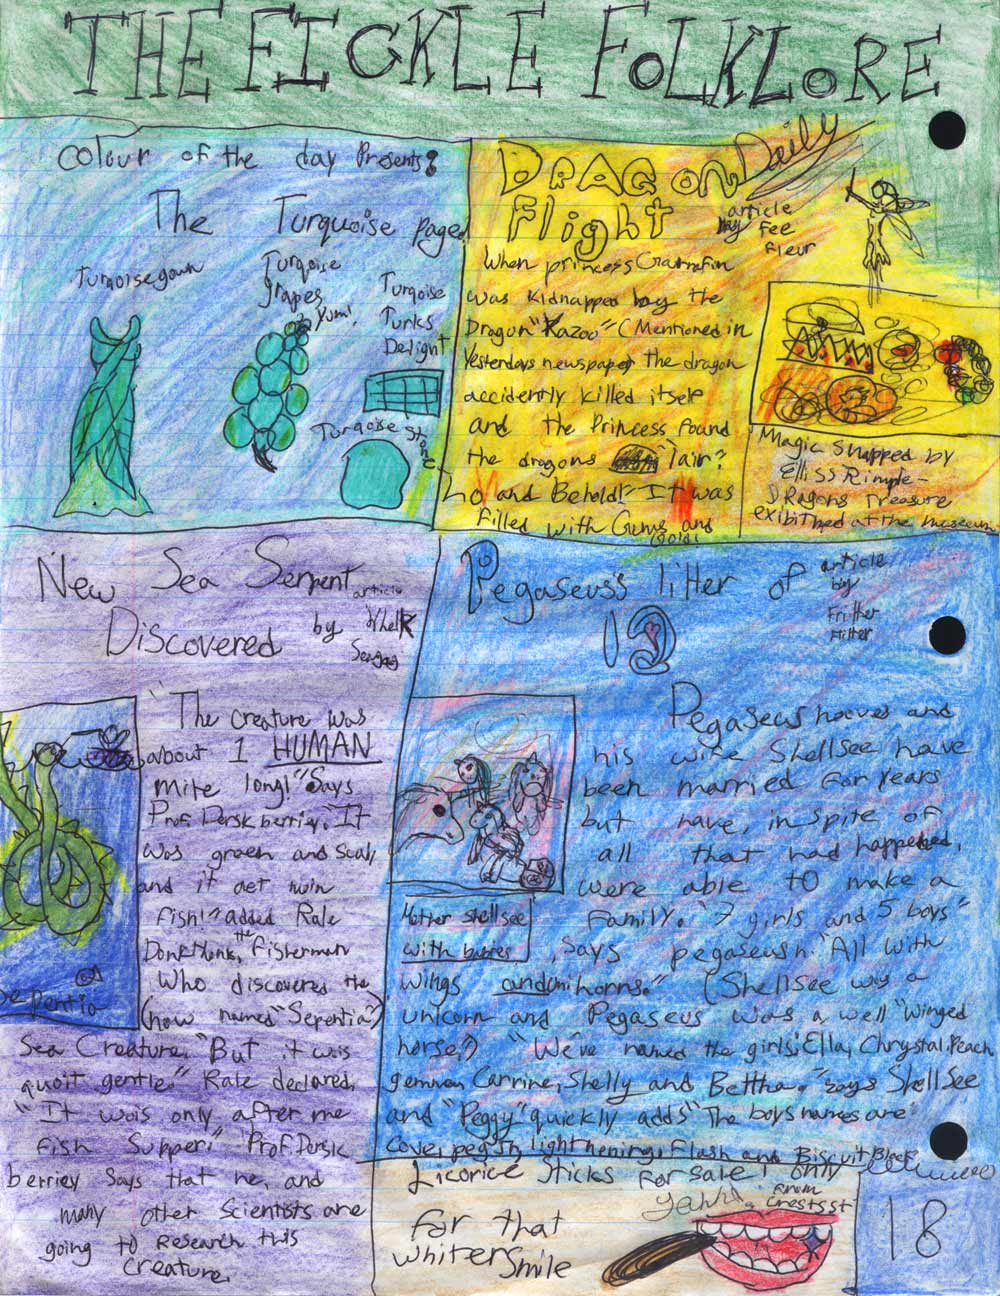 THE FICKLE FOLKLORE
Colour of the day Presents:
The Turquoise paged
Turqoisegown
Turqoise
grapes
Yum!
Turqoise
Turks
Delight
Turqoise stone
DRAGON Daily
Flight
article
by Fee
Fleur
When princess
was kidnapped by the
Dragon "Kazoo" (Mentioned in
Yesterdays newspaper the dragon
accidently killed itself
and the Princess found
the dragons lair?
Lo and Behold! It was
filled with Gems and
Gold!
Magic snapped by
Elliss Rimple-
DRagons Treasure
exibithed at the museum
New Sea Serpent
Discovered
article
by Whelk
The creature was
about 1 HUMAN
mile long!" Says
Prof. Derskberriey, "It
was green and scaly
and it aet win
fish!" added Rale
Donkthonk, the Fisherman
Who discovered the
(now named "Serpentia")
Sea Creature. "But it was
quoit gentle." Rale declared,
"It wois only after me
Fish Supper!" Prof. Dersk
berriey Says that he, and
many other Scientists are
going to Research this
Creature.
Serpentia
Pegaseus's litter of
12
article
by
Fritter
Flitter
Pegaseus hooves and
his wife ShellSee have
been married for years
but have, in spite of
all that had happened,
were able to make a
Family. "7 girls and 5 boys"
, says pegaseush. "All with
wings and unihorns." (Shellsee was a
unicorn and Pegaseus was a well "winged
horse") "We've named the girls: Ella, Chrystal, Peach
gemma, Carrine, Shelly and Beltha," says ShellSee
and "Peggy" quickly adds "The boys names are:
Cove, pegsh, lighthening, Flash and Biscuit Black
Mother shellsee
with babies
Licorice Sticks For sale! only
Yahh!
From
Crestsst
For that
whiter Smile
18